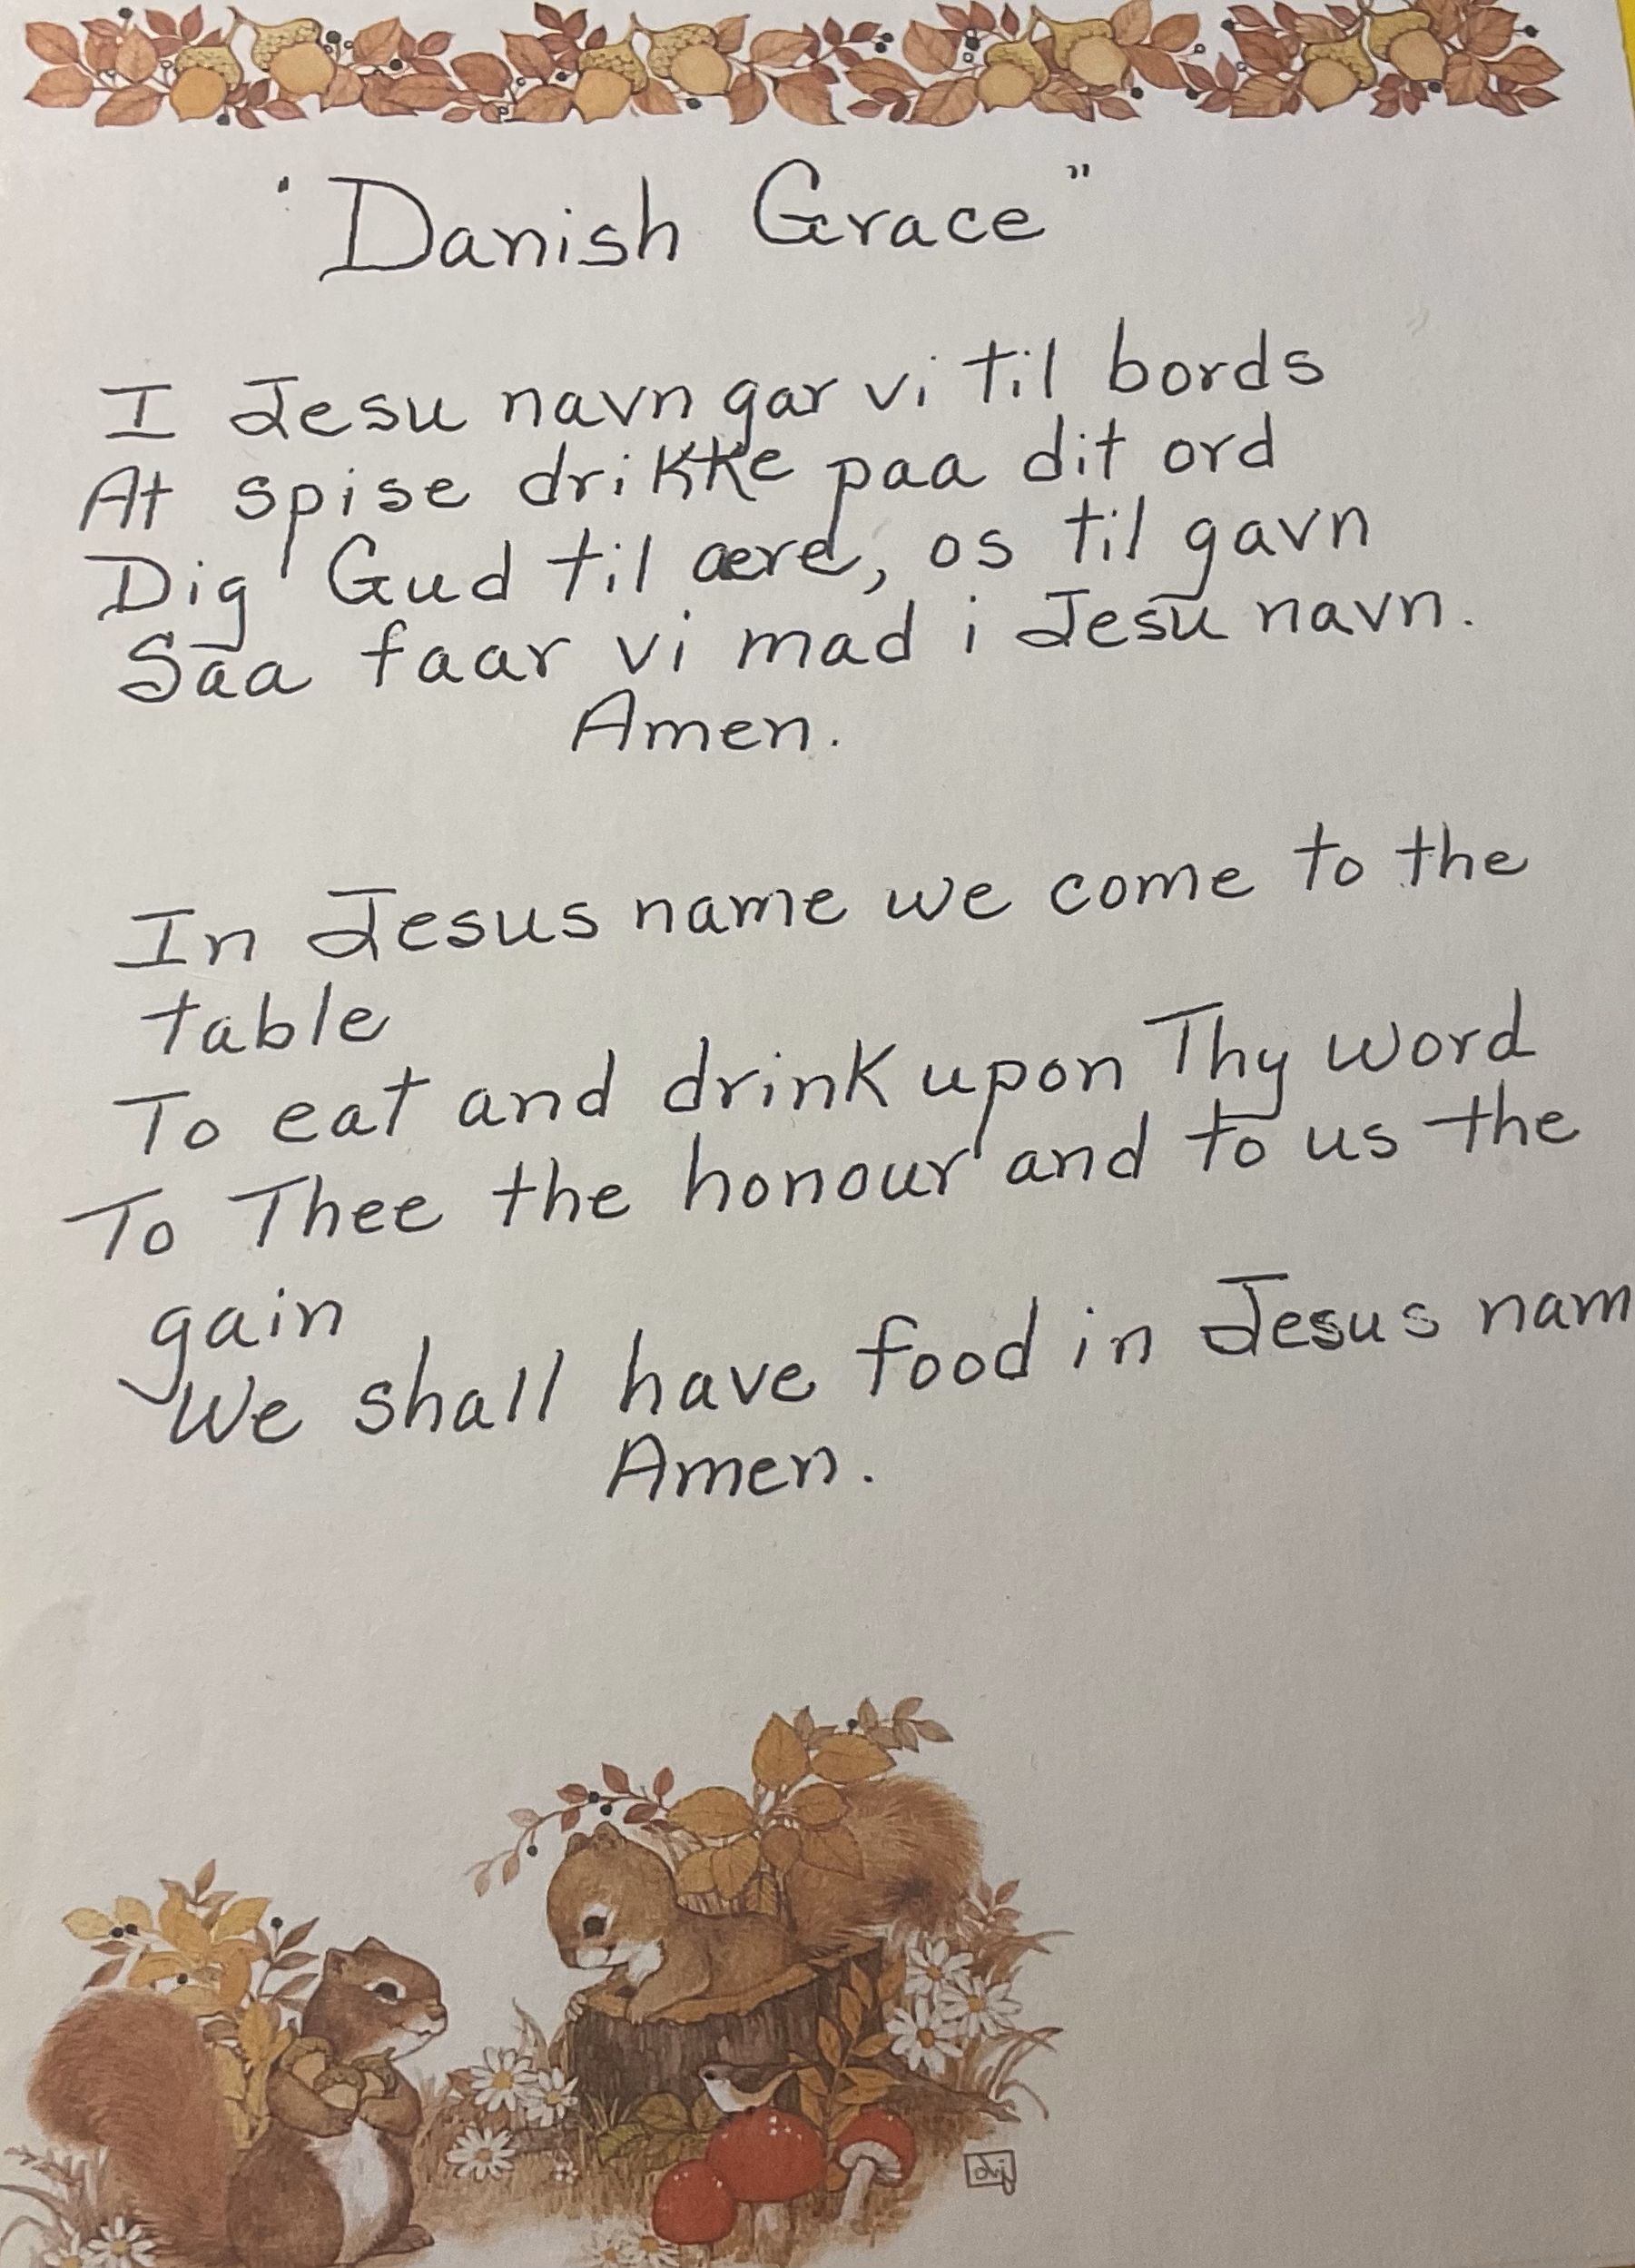 "Danish Grace"
I Jesu navn gar vi til bords
At spise drikke paa dit ord
Dig Gud til ære, os til gavn
Saa faar vi mad i Jesu navn.
Amen.
In Jesus name we come to the
table
To eat and drink upon Thy word
To Thee the honour and to us the
gain
We shall have food in Jesus nam
Amen.